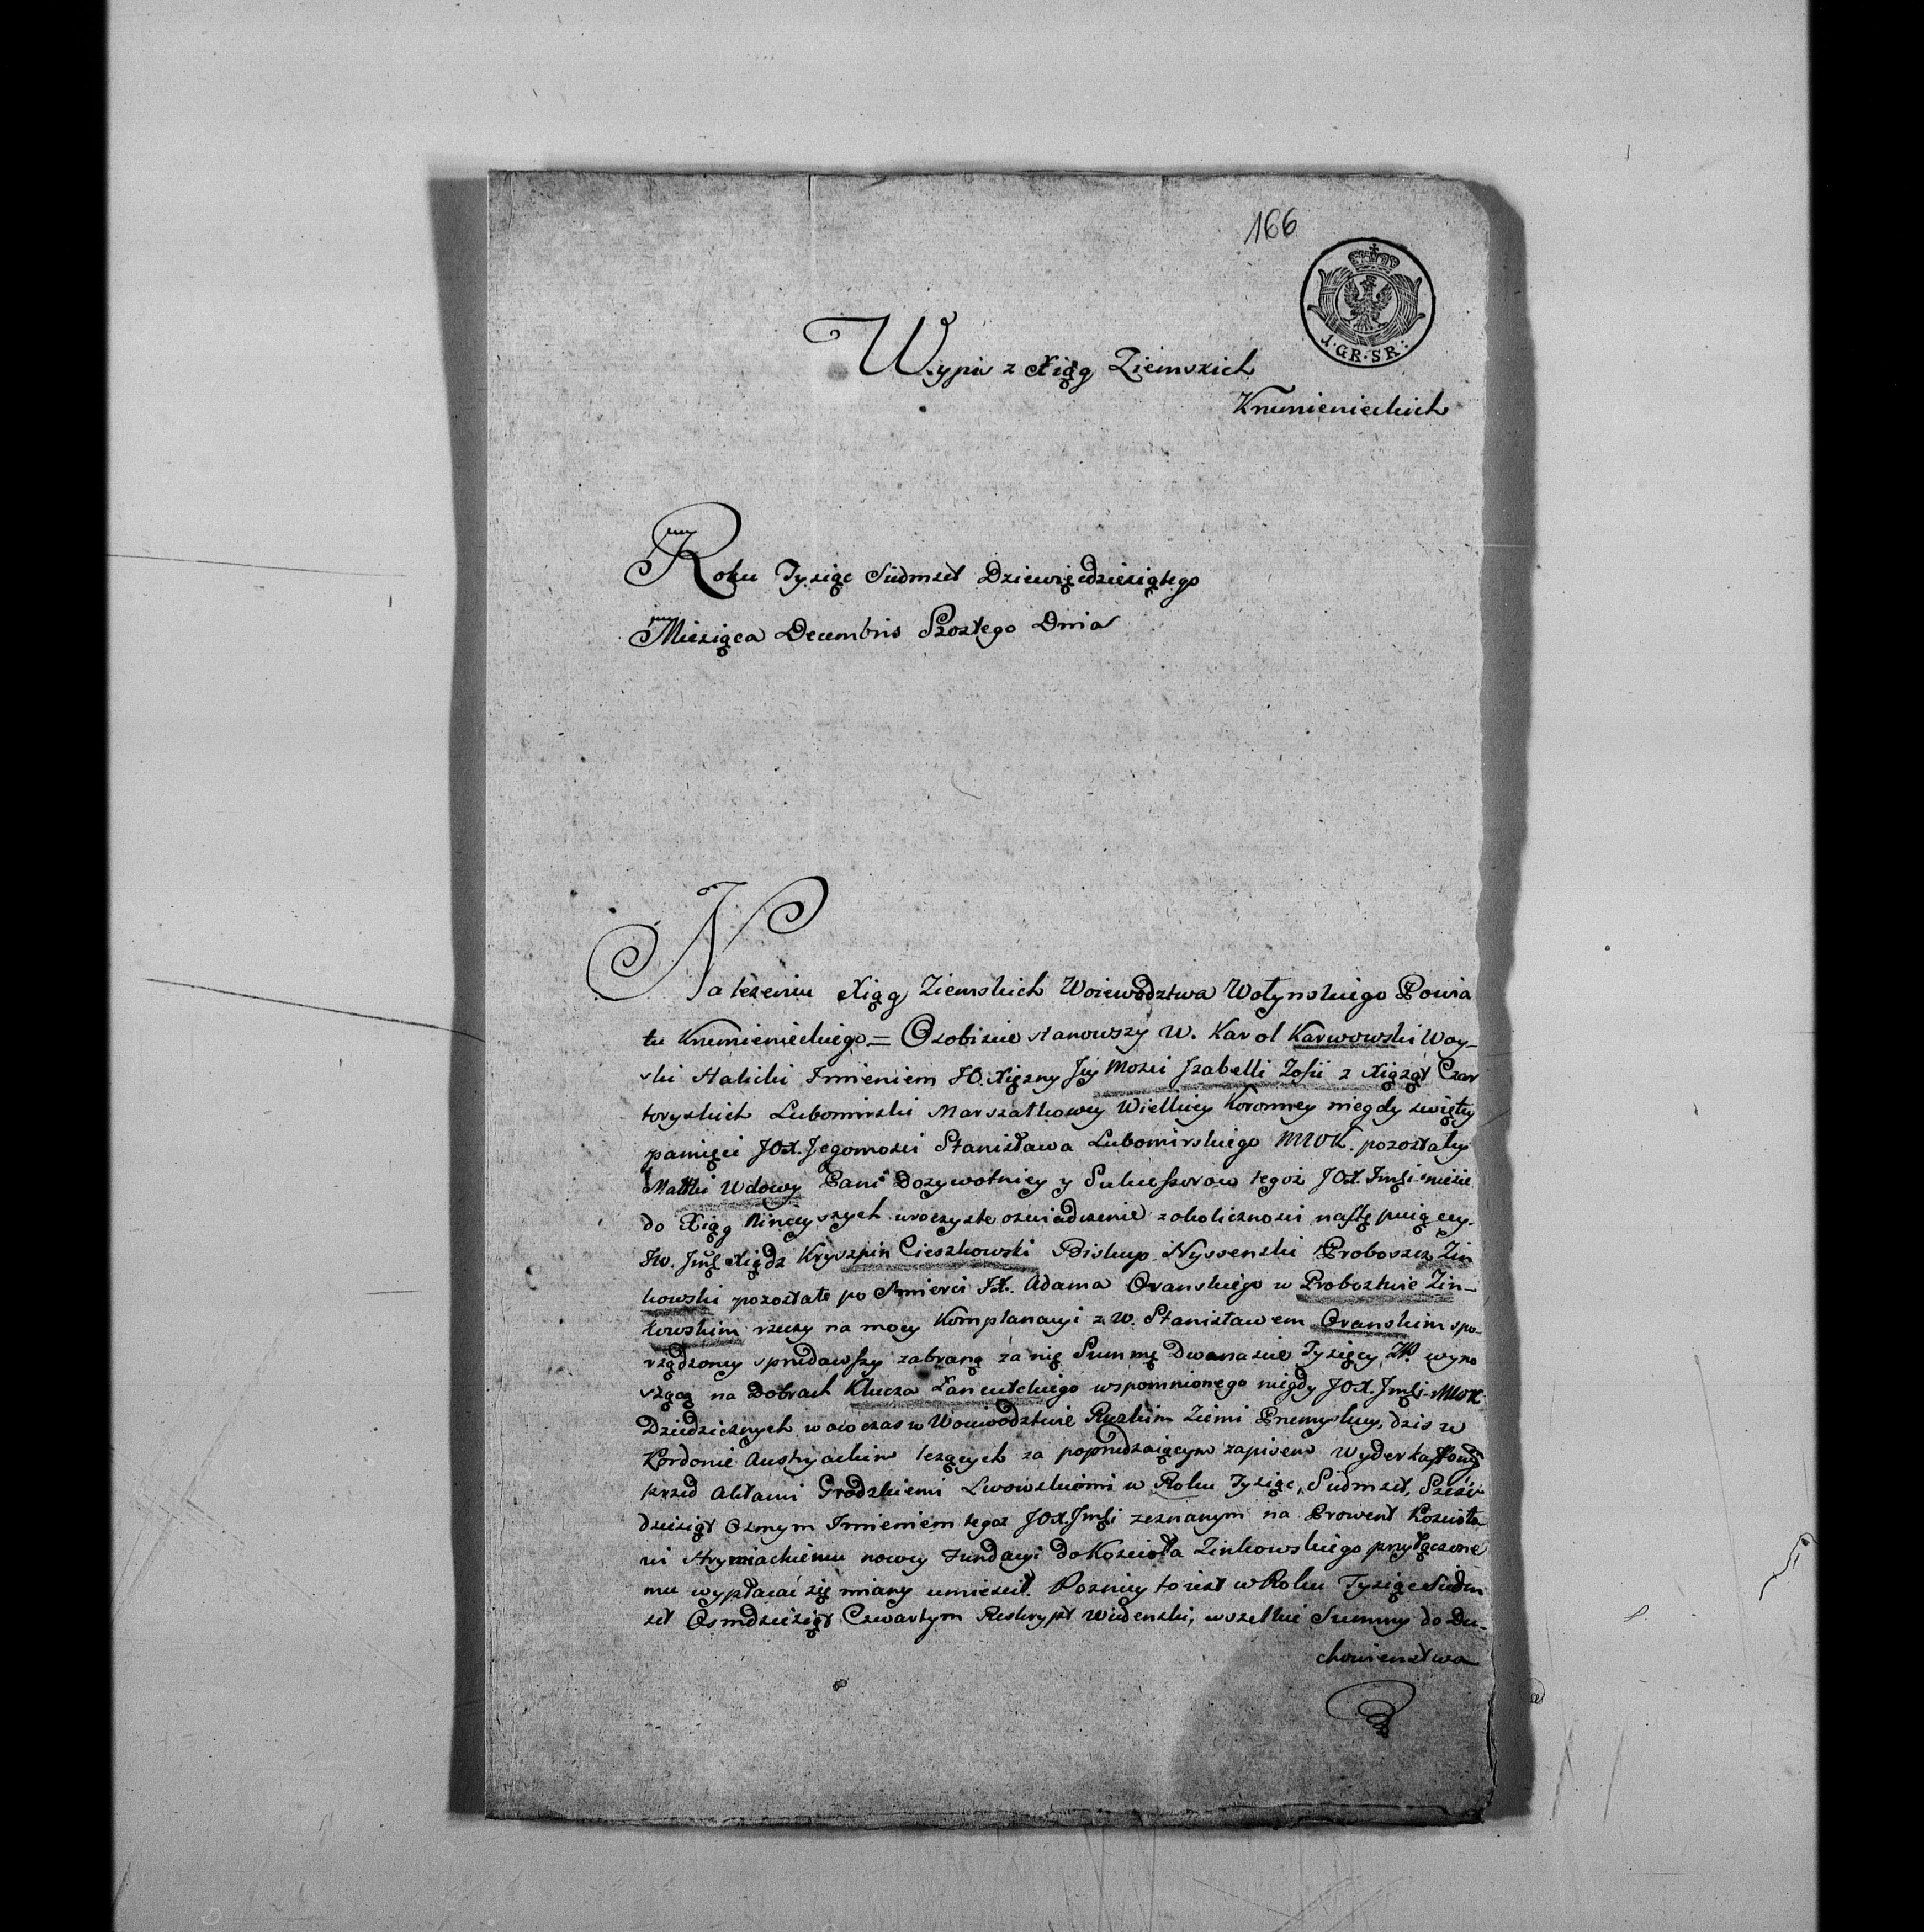 166
1·GR·SR:
Wypis z Xiąg Ziemskich
Krzemienieckich
Roku Tysiąc Siedmset Dziewięćdziesiątego
Miesiąca Decembris Szostego Dnia
Na leżeniu Xiąg Ziemskich Woiewodztwa Wołynskiego Powia
tu Krzemienieckiego = Osobiscie stanowszy W. Karol Karwowski Woy-
ski Halicki Imieniem JO. Xięzny Jey Mosci Izabelli Zofii z Xiążąt Czar
toryskich Lubomirski Marszałkowey Wielkiey Koronney niegdy swiętey
pamięci JOX. Jegomosci Stanisława Lubomirskiego MWK. pozostałey
Matki Wdowy Pani Dozywotniey y Sukcessorow tegoż JOX. Imsi niesie
do Xiąg Ninieyszych uroczyste oswiadczenie z okolicznosci następuiącey.
JW. Jmć Xiądz Kryszpin Cieszkowski Biskup Nyssenski Proboszcz Zin
kowski pozostałe po Smierci JX. Adama Oranskiego w Probostwie Zin-
kowskim rzeczy na mocy Komplanacyi z W. Stanisławem Oranskim spo-
rządzoney sprzedawszy zabraną za nię Summę Dwanascie Tysięcy Zł. wyno
szącą na Dobrach Klucza Łancutskiego wspomnionego niegdy JOX. Jmsi MWK
Dziedzicznych wowczas w Woiewodztwie Ruskim Ziemi Przemyskiey, dzis w
Kordonie Austryackim leżących za poprzedzaiącym zapisem Wyderkaffowym
przed Aktami Grodzkiemi Lwowskiemi w Roku Tysiąc, Siedmset, Szesc
dziesiąt Osmym Imieniem tegoż JOX. Jmsi zeznanym na Prowent Kościoło
wi Hrymiackiemu nowey Fundacyi do Kościoła Zinkowskiego przyłączone
mu wypłacać się miany umiescił. Pozniey to iest w Roku Tysiąc Siedm
set Osmdziesiąt Czwartym Reskrypt Wiedenski, wszelkie Summy do Du-
chowienstwa